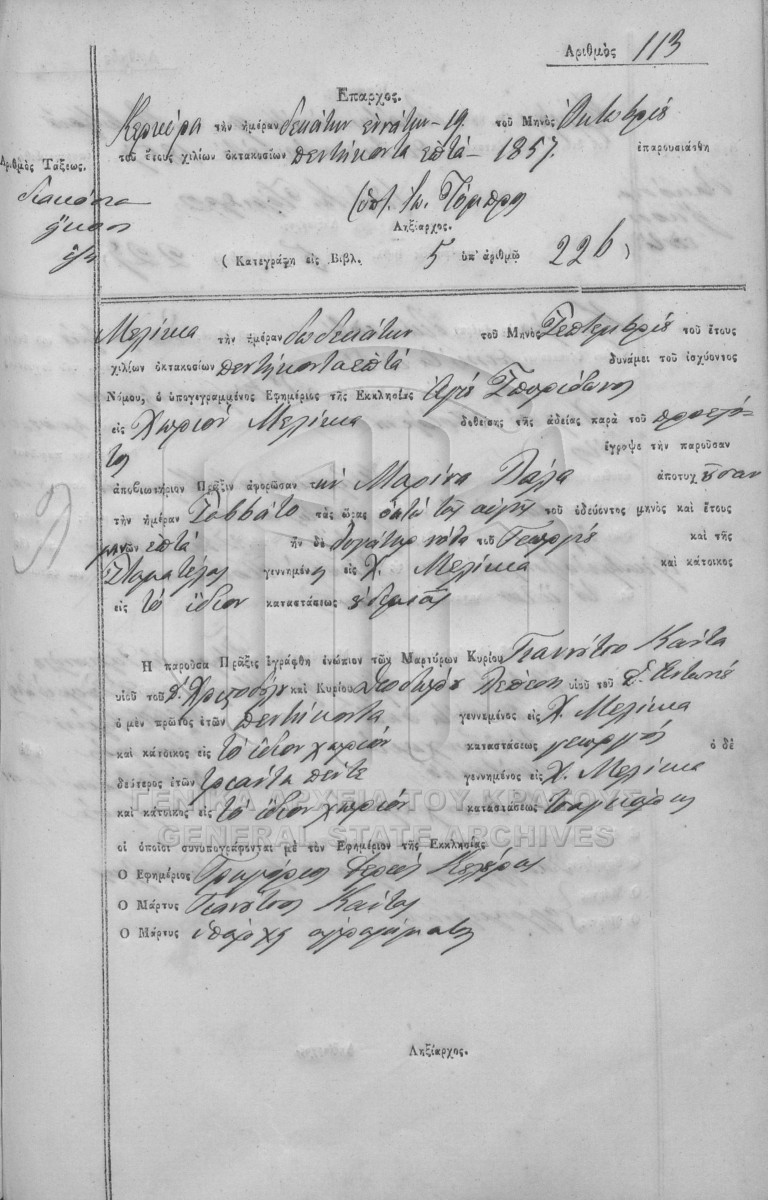 Αριθμὸς 113
Επαρχος.
Κερκύρα τὴν ἡμέραν δεκάτην εννάτην - 19. τοῦ Μηνὸς Ὀκτωβρίȣ
τοῦ ἔτους χιλίων ὀκτακοσίων πεντήκοντα ἑπτὰ - 1857. ἐπαρουσιάσθη
Αριθμὸς Τάξεως.
διακόσια
εἴκοσι
ἕξη
Ληξίαρχος.
( Κατεγράφη εἰς Βιβλ. 5 ὑπ' ἀριθμῷ 226 )
Μελίκια τὴν ἡμέραν δωδεκάτην τοῦ Μηνὸς Σεπτεμβρίȣ τοῦ ἔτους
χιλίων ὀκτακοσίων πεντήκοντα ἑπτὰ δυνάμει τοῦ ἰσχύοντος
Νόμου, ὁ ὑπογεγραμμένος Εφημέριος τῆς Εκκλησίας Ἁγίȣ Σπυρίδωνος
εἰς Χωρίον Μελίκια δοθείσης τῆς ἀδείας παρὰ τοῦ προεστό-
τος ἔγραψε τὴν παροῦσαν
ἀποβιωτήριον Πρᾶξιν ἀφορῶσαν τὴν Μαρίνα ἀποτυχȣσαν
τὴν ἡμέραν Σαββάτο τὰς ὥρας ὀκτὼ τῆς αὐγῆς τοῦ ὁδεύοντος μηνὸς καὶ ἔτους
μηνῶν ἑπτὰ ἦν δὲ θυγάτηρ τοῦ Γεωργίȣ καὶ τῆς
Σταματέλας γεννημένη εἰς Χ. Μελίκια καὶ κάτοικος
εἰς τὸ ἴδιον καταστάσεως
Η παροῦσα Πρᾶξις ἐγράφθη ἐνώπιον τῶν Μαρτύρων Κυρίου Γιαννάτσο Καίτα
υἱοῦ τοῦ καὶ Κυρίου υἱοῦ τοῦ
ὁ μὲν πρῶτος ἐτῶν πεντήκοντα γεννημένος εἰς Χ. Μελίκια
καὶ κάτοικος εἰς τὸ ἴδιον χωρίον καταστάσεως γεωργὸς ὁ δὲ
δεύτερος ἐτῶν τριάντα πέντε γεννημένος εἰς Χ. Μελίκια
καὶ κάτοικος εἰς τὸ ἴδιον χωρίον καταστάσεως
οἱ ὁποῖοι συνυπογράφονται μὲ τὸν Εφημέριον τῆς Εκκλησίας
Ο Εφημέριος Γρηγόριος Ἱερεὺς
Ο Μάρτυς Γιανάτσος Καίτας
Ο Μάρτυς ὑπάρχη ἀγράμματος
Ληξίαρχος.
ΓΕΝΙΚΑ ΑΡΧΕΙΑ ΤΟΥ ΚΡΑΤΟΥΣ
GENERAL STATE ARCHIVES